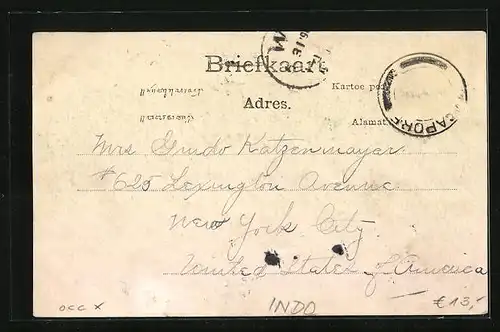 Briefkaart
Adres.
Kartoe pos
Alamat.
APORE
Mrs Guido Katzenmayer.
#625 Lexington Avenue
New York City
United States of America
occ x
INDO
€ 13,-